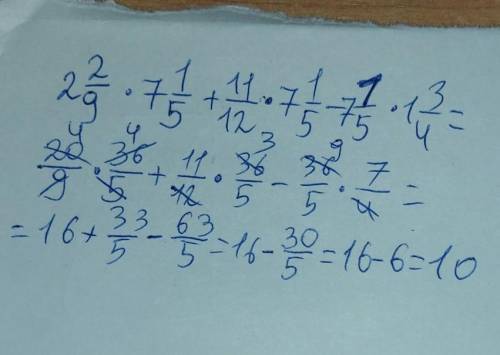 2 2/9 · 7 1/5 + 11/12 · 7 1/5 - 7 1/5 · 1 3/4 =
20/9 4 · 36/5 4 + 11/12 · 36/5 3 - 36/5 9 · 7/4 =
= 16 + 33/5 - 63/5 = 16 - 30/5 = 16 - 6 = 10